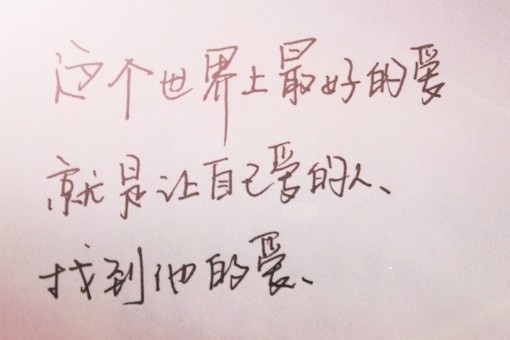 这个世界上最好的爱
就是让自己爱的人、
找到他的爱、